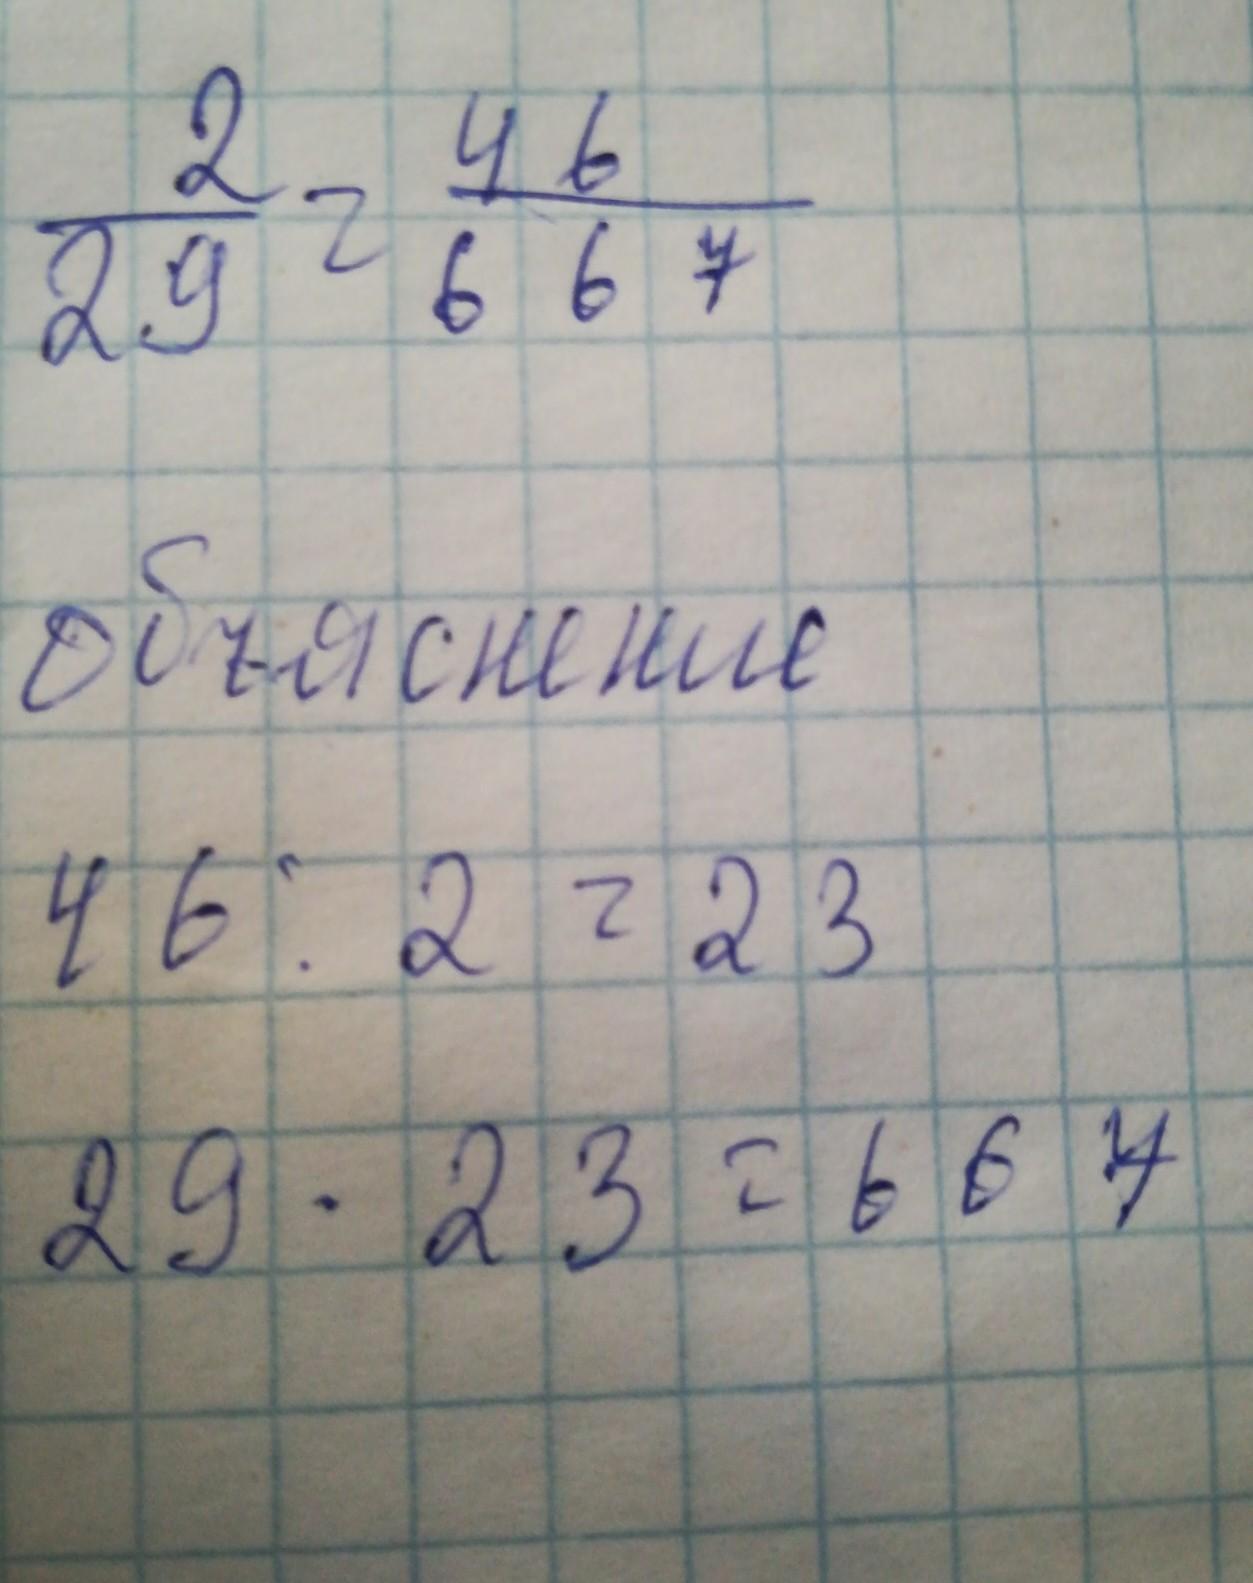 2/29 = 46/667
объяснение
46 : 2 = 23
29 · 23 = 667